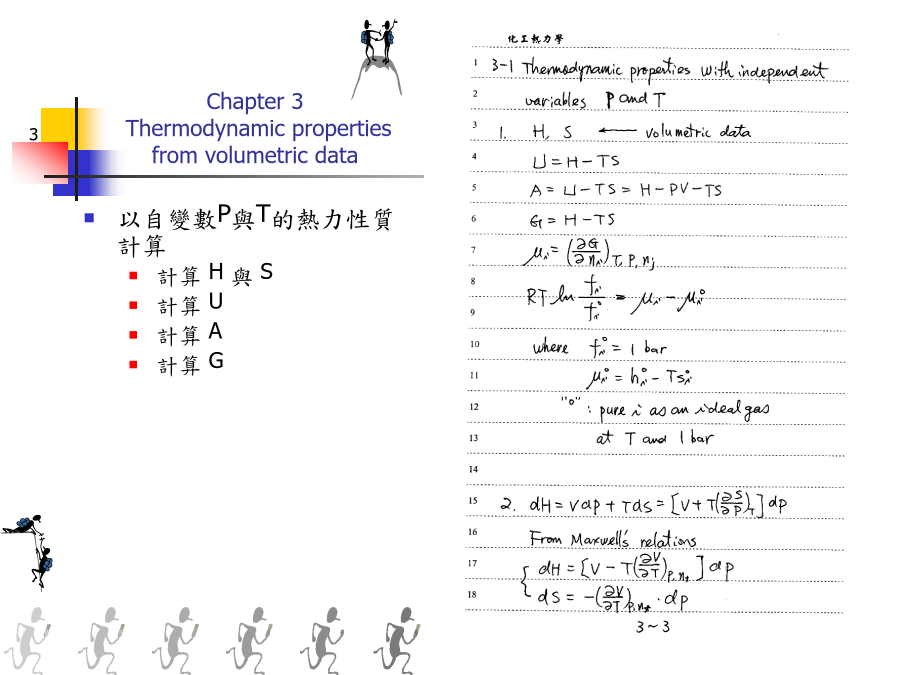 3
Chapter 3
Thermodynamic properties
from volumetric data
以自變數P與T的熱力性質
計算
計算 H 與 S
計算 U
計算 A
計算 G
化工熱力學
1 3-1 Thermodynamic properties with independent
2 variables P and T
3 1. H, S ← volumetric data
4 U = H - TS
5 A = U - TS = H - PV - TS
6 G = H - TS
7 μᵢ = (∂G/∂nᵢ)T, P, nⱼ
8 RT ln fᵢ/fᵢ° = μᵢ - μᵢ°
9
10 where fᵢ° = 1 bar
11 μᵢ° = hᵢ° - Tsᵢ°
12 "o" : pure i as an ideal gas
13 at T and 1 bar
14
15 2. dH = Vdp + Tds = [V + T(∂S/∂P)T] dp
16 From Maxwell's relations
17 dH = [V - T(∂V/∂T)P,nT] dp
18 dS = -(∂V/∂T)P,nT · dp
3~3